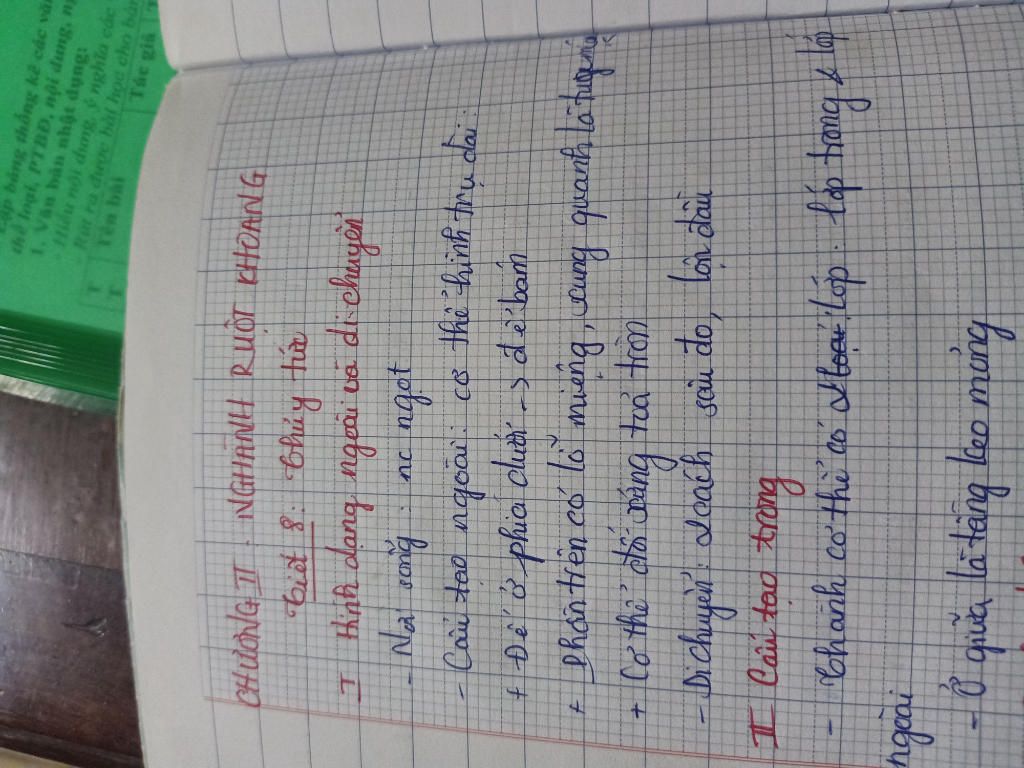 CHƯƠNG II : NGHÀNH RUỘT KHOANG
Tiết 8 : Thủy tức
I Hình dạng ngoài và di chuyển
- Nơi sống : nc ngọt
- Cấu tạo ngoài : cơ thể hình trụ dài :
+ Đế ở phía dưới -> để bám
+ Phần trên có lỗ miệng, xung quanh là tua
+ Cơ thể đối xứng toả tròn
- Di chuyển : 2 cách sâu đo, lộn đầu
II Cấu tạo trong
- Thành cơ thể có 2 lớp . lớp trong & lớp
ngoài
- Ở giữa là tầng keo mỏng
Lập bảng thống kê các văn
thể loại, PTBĐ, nội dung,
1. Văn bản nhật dụng:
- Hiểu nội dung, ý nghĩa các
- Rút ra được bài học cho bản
T
T
Tên bài
Tác giả
T